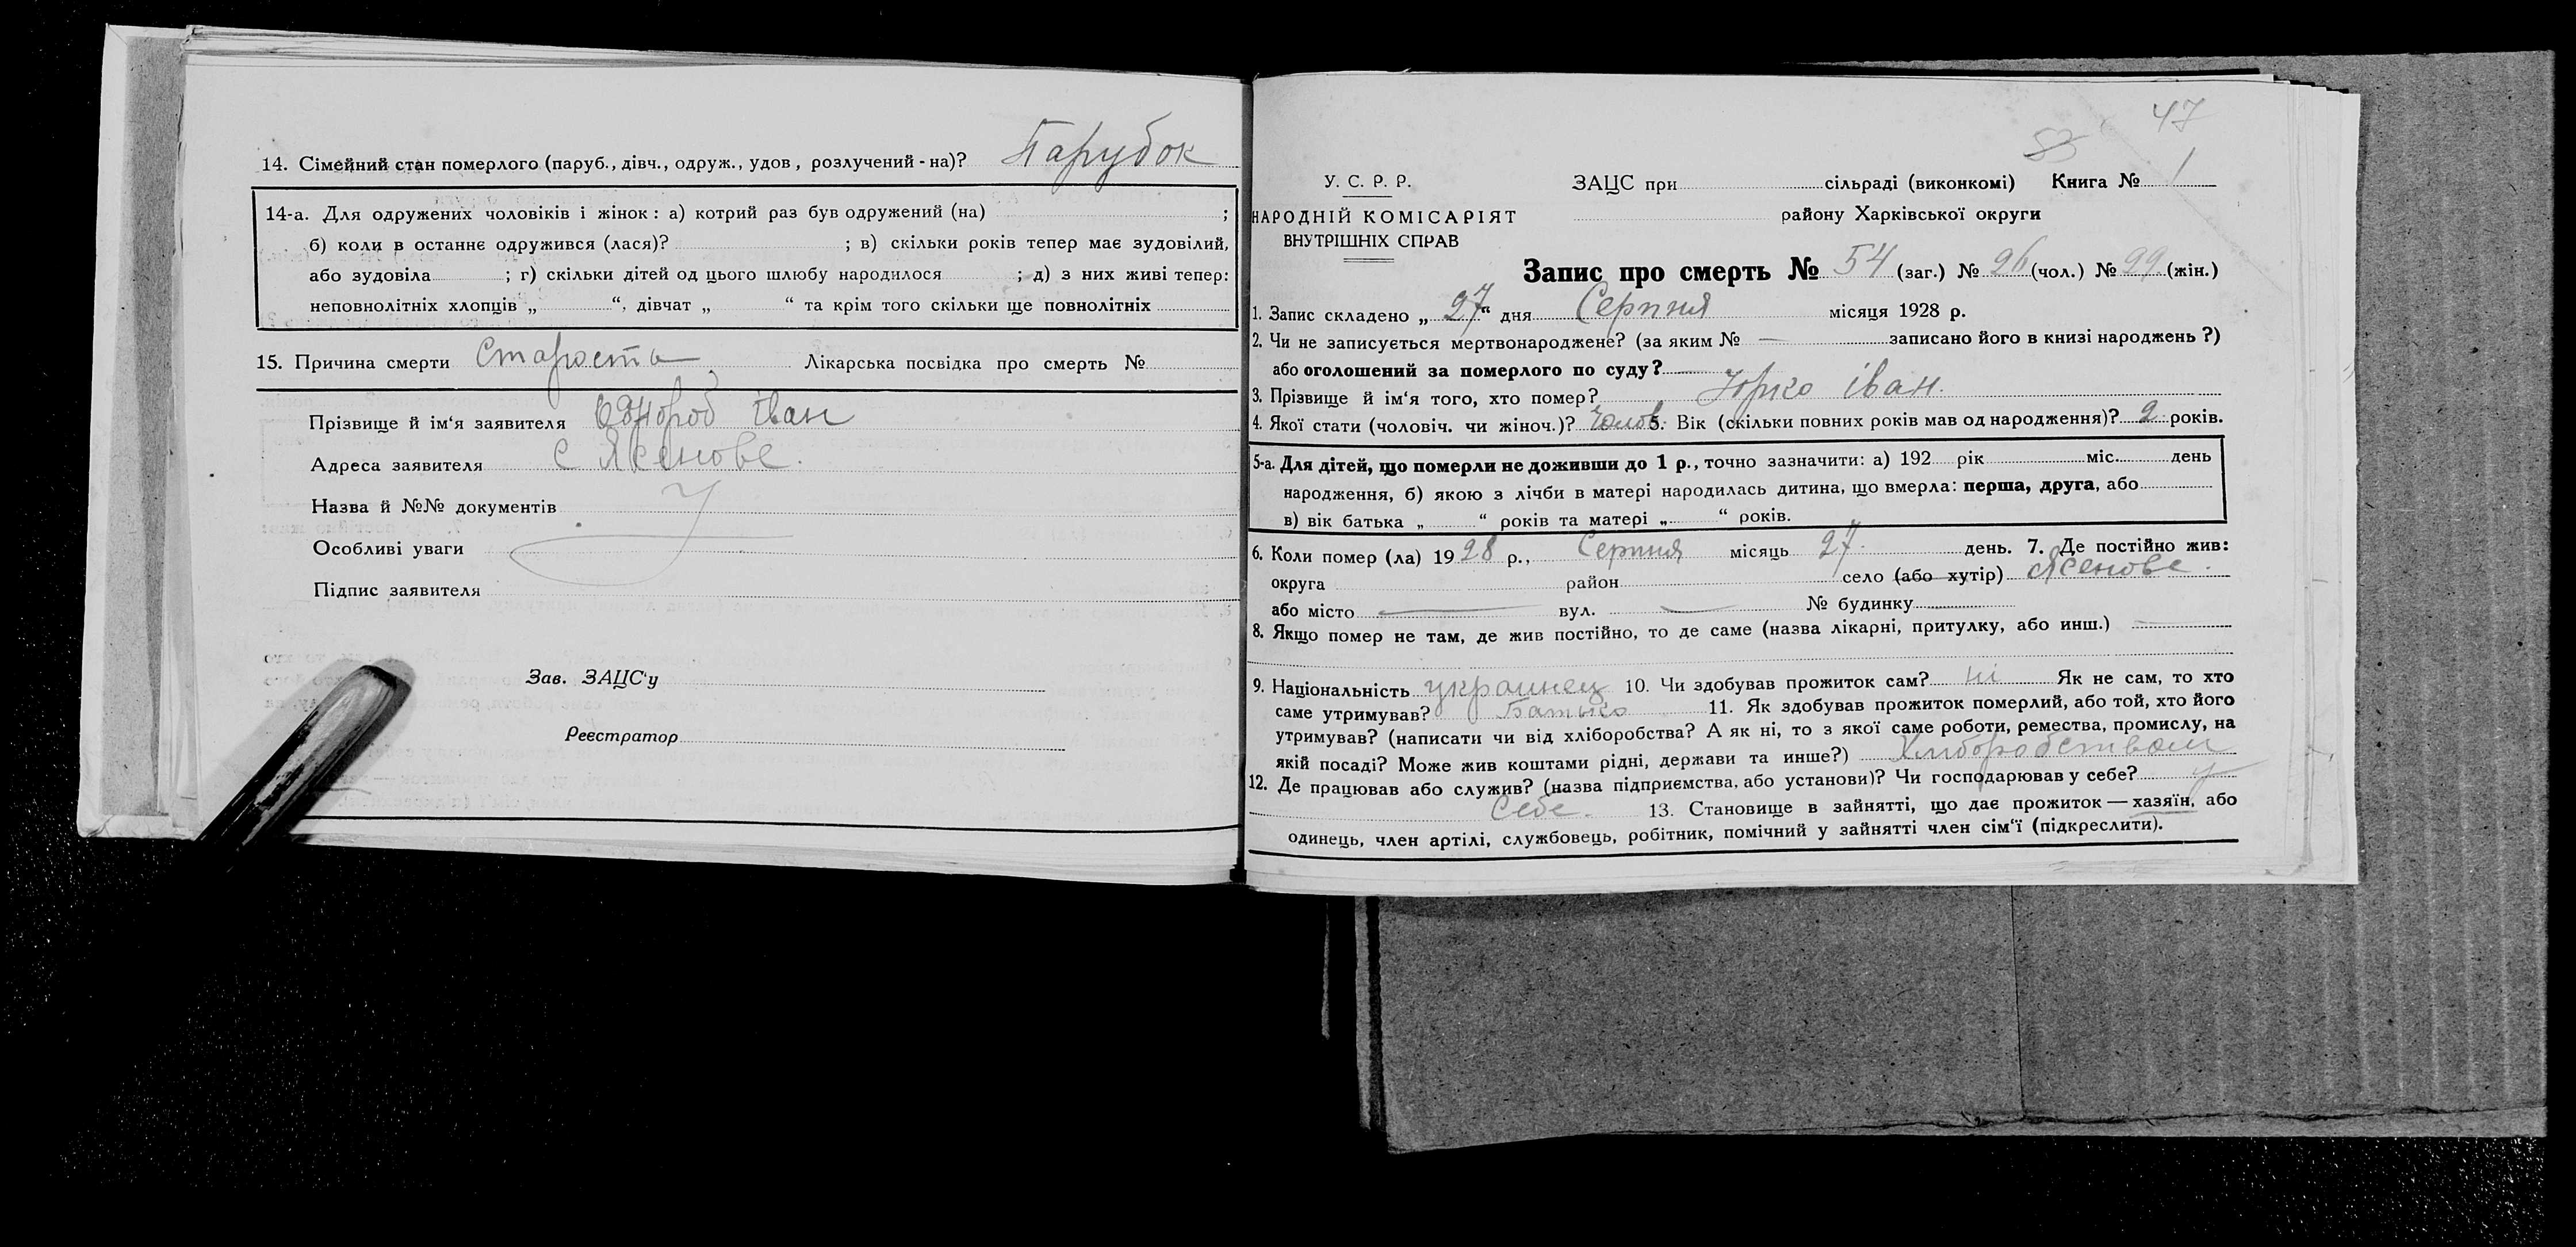 14. Сімейний стан померлого (паруб., дівч., одруж., удов., розлучений - на)? Парубок
14-а. Для одружених чоловіків і жінок: а) котрий раз був одружений (на) ;
б) коли в останнє одружився (лася)? ; в) скільки років тепер має зудовілий,
або зудовіла ; г) скільки дітей од цього шлюбу народилося ; д) з них живі тепер:
неповнолітніх хлопців „ “, дівчат „ “ та крім того скільки ще повнолітніх
15. Причина смерти Старость Лікарська посвідка про смерть №
Прізвище й ім‘я заявителя Іван
Адреса заявителя с Ясенове.
Назва й №№ документів
Особливі уваги
Підпис заявителя
Зав. ЗАЦС‘у
Реєстратор
47
83
У. С. Р. Р.
НАРОДНІЙ КОМІСАРІЯТ
ВНУТРІШНІХ СПРАВ
ЗАЦС при сільраді (виконкомі) Книга № 1
району Харківської округи
Запис про смерть № 54 (заг.) № 26 (чол.) № 29 (жін.)
1. Запис складено „ 27 “ дня Серпня місяця 1928 р.
2. Чи не записується мертвонароджене? (за яким № — записано його в книзі народжень ?)
або оголошений за померлого по суду? —
3. Прізвище й ім‘я того, хто помер? Юрко іван.
4. Якої стати (чоловіч. чи жіноч.)? Чолов. 5. Вік (скільки повних років мав од народження)? 2 років.
5-а. Для дітей, що померли не доживши до 1 р., точно зазначити: а) 192 рік міс. день
народження, б) якою з лічби в матері народилась дитина, що вмерла: перша, друга, або
в) вік батька „ “ років та матері „ “ років.
6. Коли помер (ла) 1928 р., Серпня місяць 27 день. 7. Де постійно жив:
округа район село (або хутір) Ясенове.
або місто — вул. — № будинку
8. Якщо помер не там, де жив постійно, то де саме (назва лікарні, притулку, або инш.) —
9. Національність украинец 10. Чи здобував прожиток сам? ні Як не сам, то хто
саме утримував? Батько 11. Як здобував прожиток померлий, або той, хто його
утримував? (написати чи від хліборобства? А як ні, то з якої саме роботи, ремества, промислу, на
якій посаді? Може жив коштами рідні, держави та инше?) Хлиборобством
12. Де працював або служив? (назва підприємства, або установи)? Чи господарював у себе? у
Себе. 13. Становище в зайнятті, що дає прожиток — хазяїн, або
одинець, член артілі, службовець, робітник, помічний у зайнятті член сім‘ї (підкреслити).